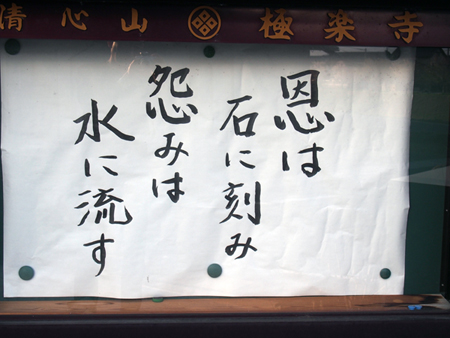 清心山 極楽寺
恩は
石に刻み
怨みは
水に流す